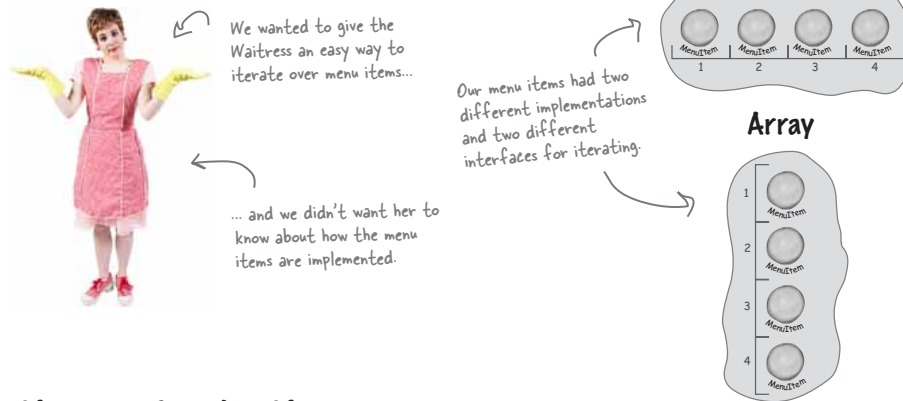 We wanted to give the
Waitress an easy way to
iterate over menu items...
... and we didn't want her to
know about how the menu
items are implemented.
Our menu items had two
different implementations
and two different
interfaces for iterating.
MenuItem MenuItem MenuItem MenuItem
1 2 3 4
Array
1
MenuItem
2
MenuItem
3
MenuItem
4
MenuItem